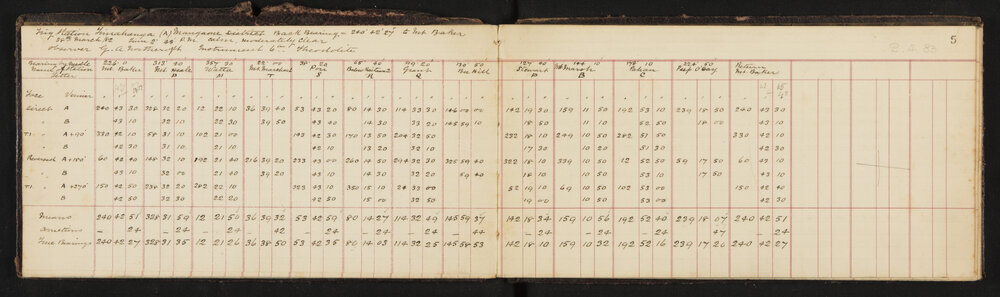 Trig Station (A) Mangaone District Back Bearing - 240° 42' 27" to Mt Baker
24th March 82 Time 2. 45 P.M. calm moderately clear
Observer G.A. Northcroft Instrument 6 in Theodolite
R.A. 83
5
Bearing by needle 226 0 313 40 357 30 22 00 38 20 65 40 99 20 130 50 127 40 144 10 178 10 224 50 Return
Name of Station Mt. Baker Mt. Heale Watta Mt. Pine Grant Bee Hill Stewart Mt Marsh Peep O'Day Mt. Baker
Letter P N T S R Q P B C
Face Vernier ° ' "
Direct A 240 43 30 328 32 20 12 22 10 36 39 40 53 43 20 80 14 30 114 33 30 146 00 00 142 19 30 159 11 50 192 53 10 239 18 50 240 43 30
" B 43 10 32 10 22 30 39 50 43 40 14 30 33 20 145 59 10 18 50 11 10 52 50 18 00 43 10
" A+90° 330 42 10 58 31 10 102 21 00 143 42 30 170 13 50 204 32 50 232 18 10 249 10 50 282 51 50 330 42 10
" B 42 30 31 10 21 10 42 10 13 20 32 10 17 30 10 20 51 30 42 30
Reversed A+180° 60 42 40 148 32 10 192 21 40 216 39 20 233 43 00 260 14 50 294 32 30 325 59 40 322 18 10 339 10 50 12 52 50 59 17 50 60 43 10
" B 43 10 32 00 21 40 39 20 43 10 14 30 32 20 59 40 18 10 10 50 53 10 17 50 43 10
" A+270° 150 42 50 238 32 20 282 22 10 323 43 10 350 15 10 24 33 00 52 19 10 69 10 50 102 53 00 150 42 40
" B 42 50 32 30 22 20 43 50 15 00 32 50 19 00 10 50 53 00 42 30
Means 240 42 51 328 31 59 12 21 50 36 39 32 53 42 59 80 14 27 114 32 49 145 59 37 142 18 34 159 10 56 192 52 40 239 18 07 240 42 51
Corrections - 24 - 24 - 24 - 42 - 24 - 24 - 24 - 44 - 24 - 24 - 24 - 47 - 24
True Bearings 240 42 27 328 31 35 12 21 26 36 38 50 53 42 35 80 14 03 114 32 25 145 58 53 142 18 10 159 10 32 192 52 16 239 17 20 240 42 27